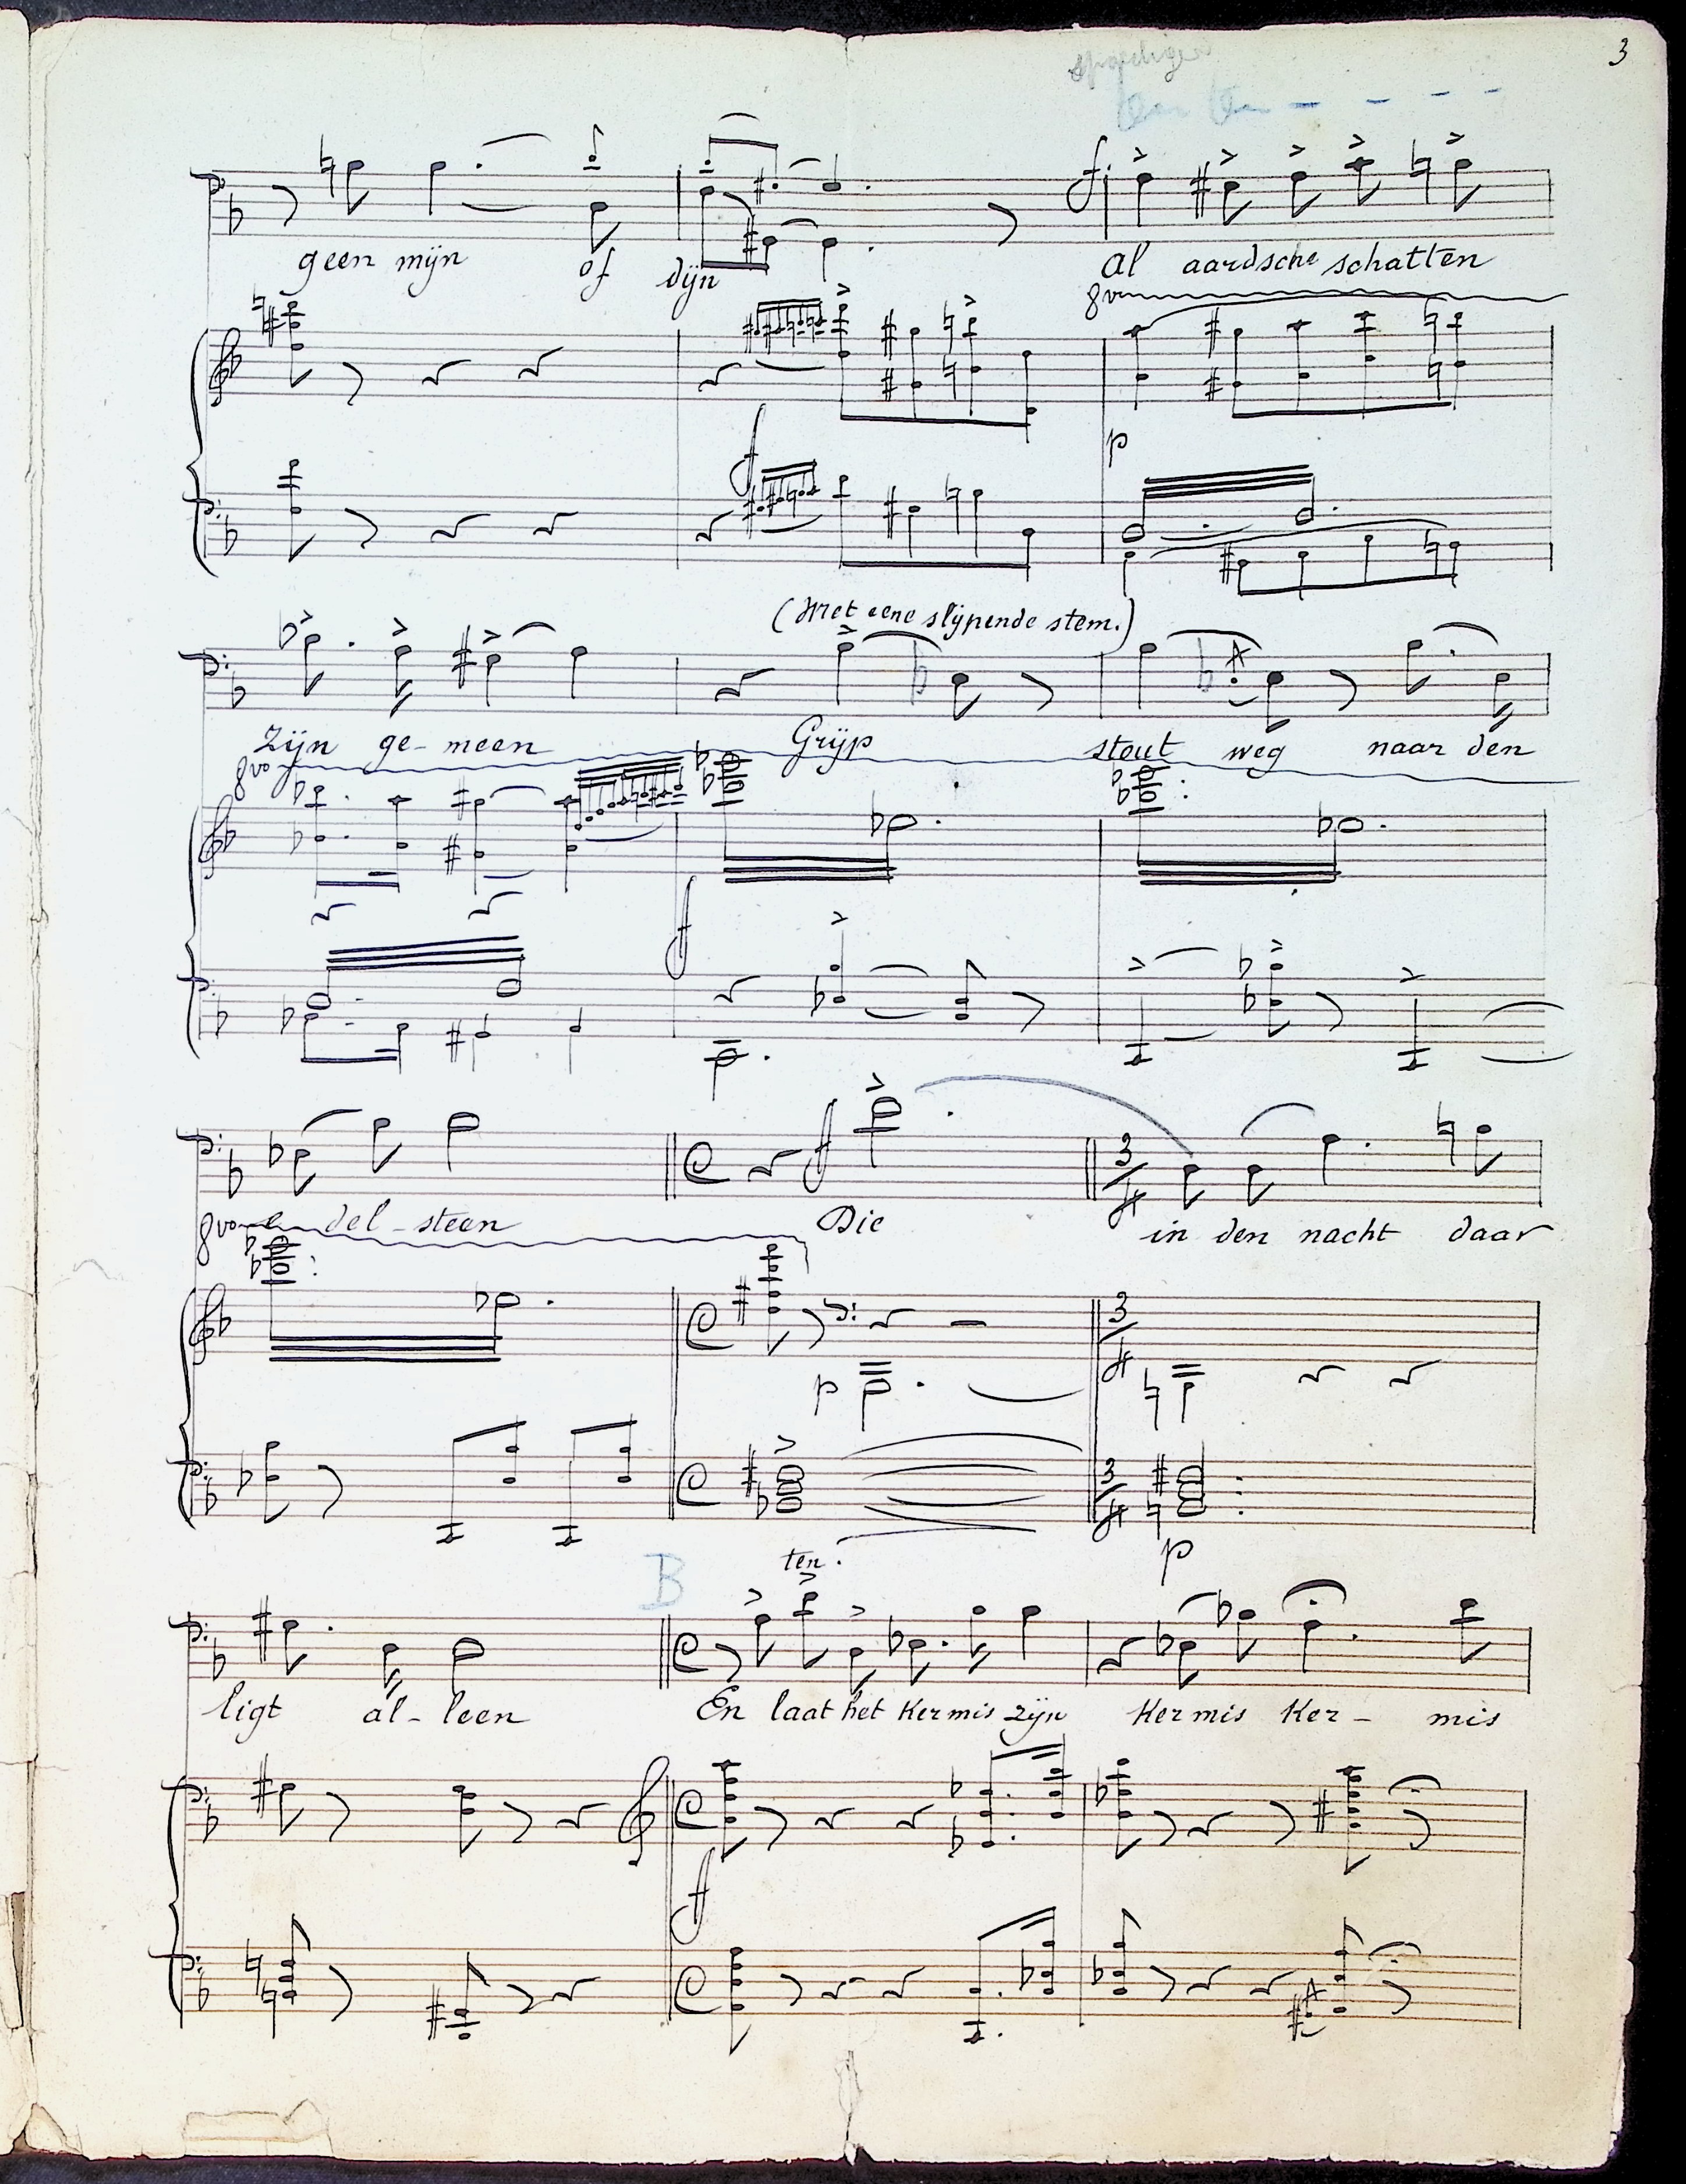 3
geen mijn of dijn
f
Al aardsche schatten
8vo
f
p
(Met eene slijpende stem.)
Zijn ge- meen Grijp stout weg naar den
8vo
f
C f 3/4
e - del - steen Die in den nacht daar
8vo
C 3/4
p
C 3/4
p
B ten.
C
ligt al- leen En laat het Kermis zijn Kermis Ker - mis
C
f
C